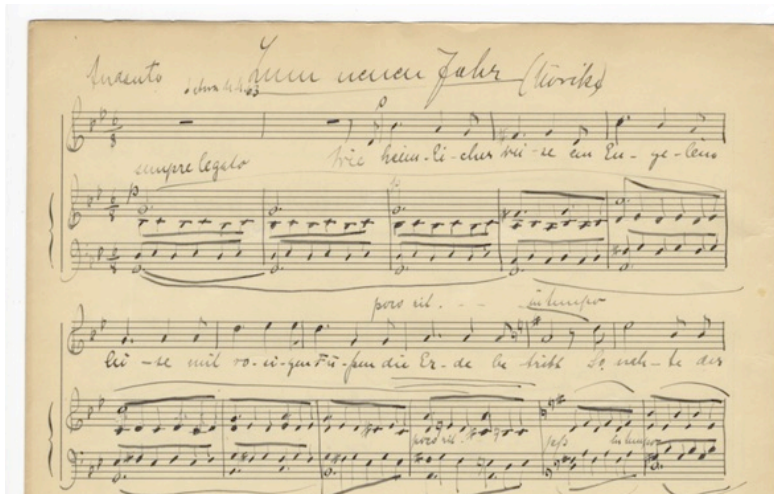 Andante Zum neuen Jahr (Mörike)
sempre legato
Wie heim-li-cher wei-se ein En-ge-lein
p
poco rit. - - in tempo
lei-se mit ro-si-gen Fü-ßen die Er-de be-tritt So nah-te der
poco rit. in tempo